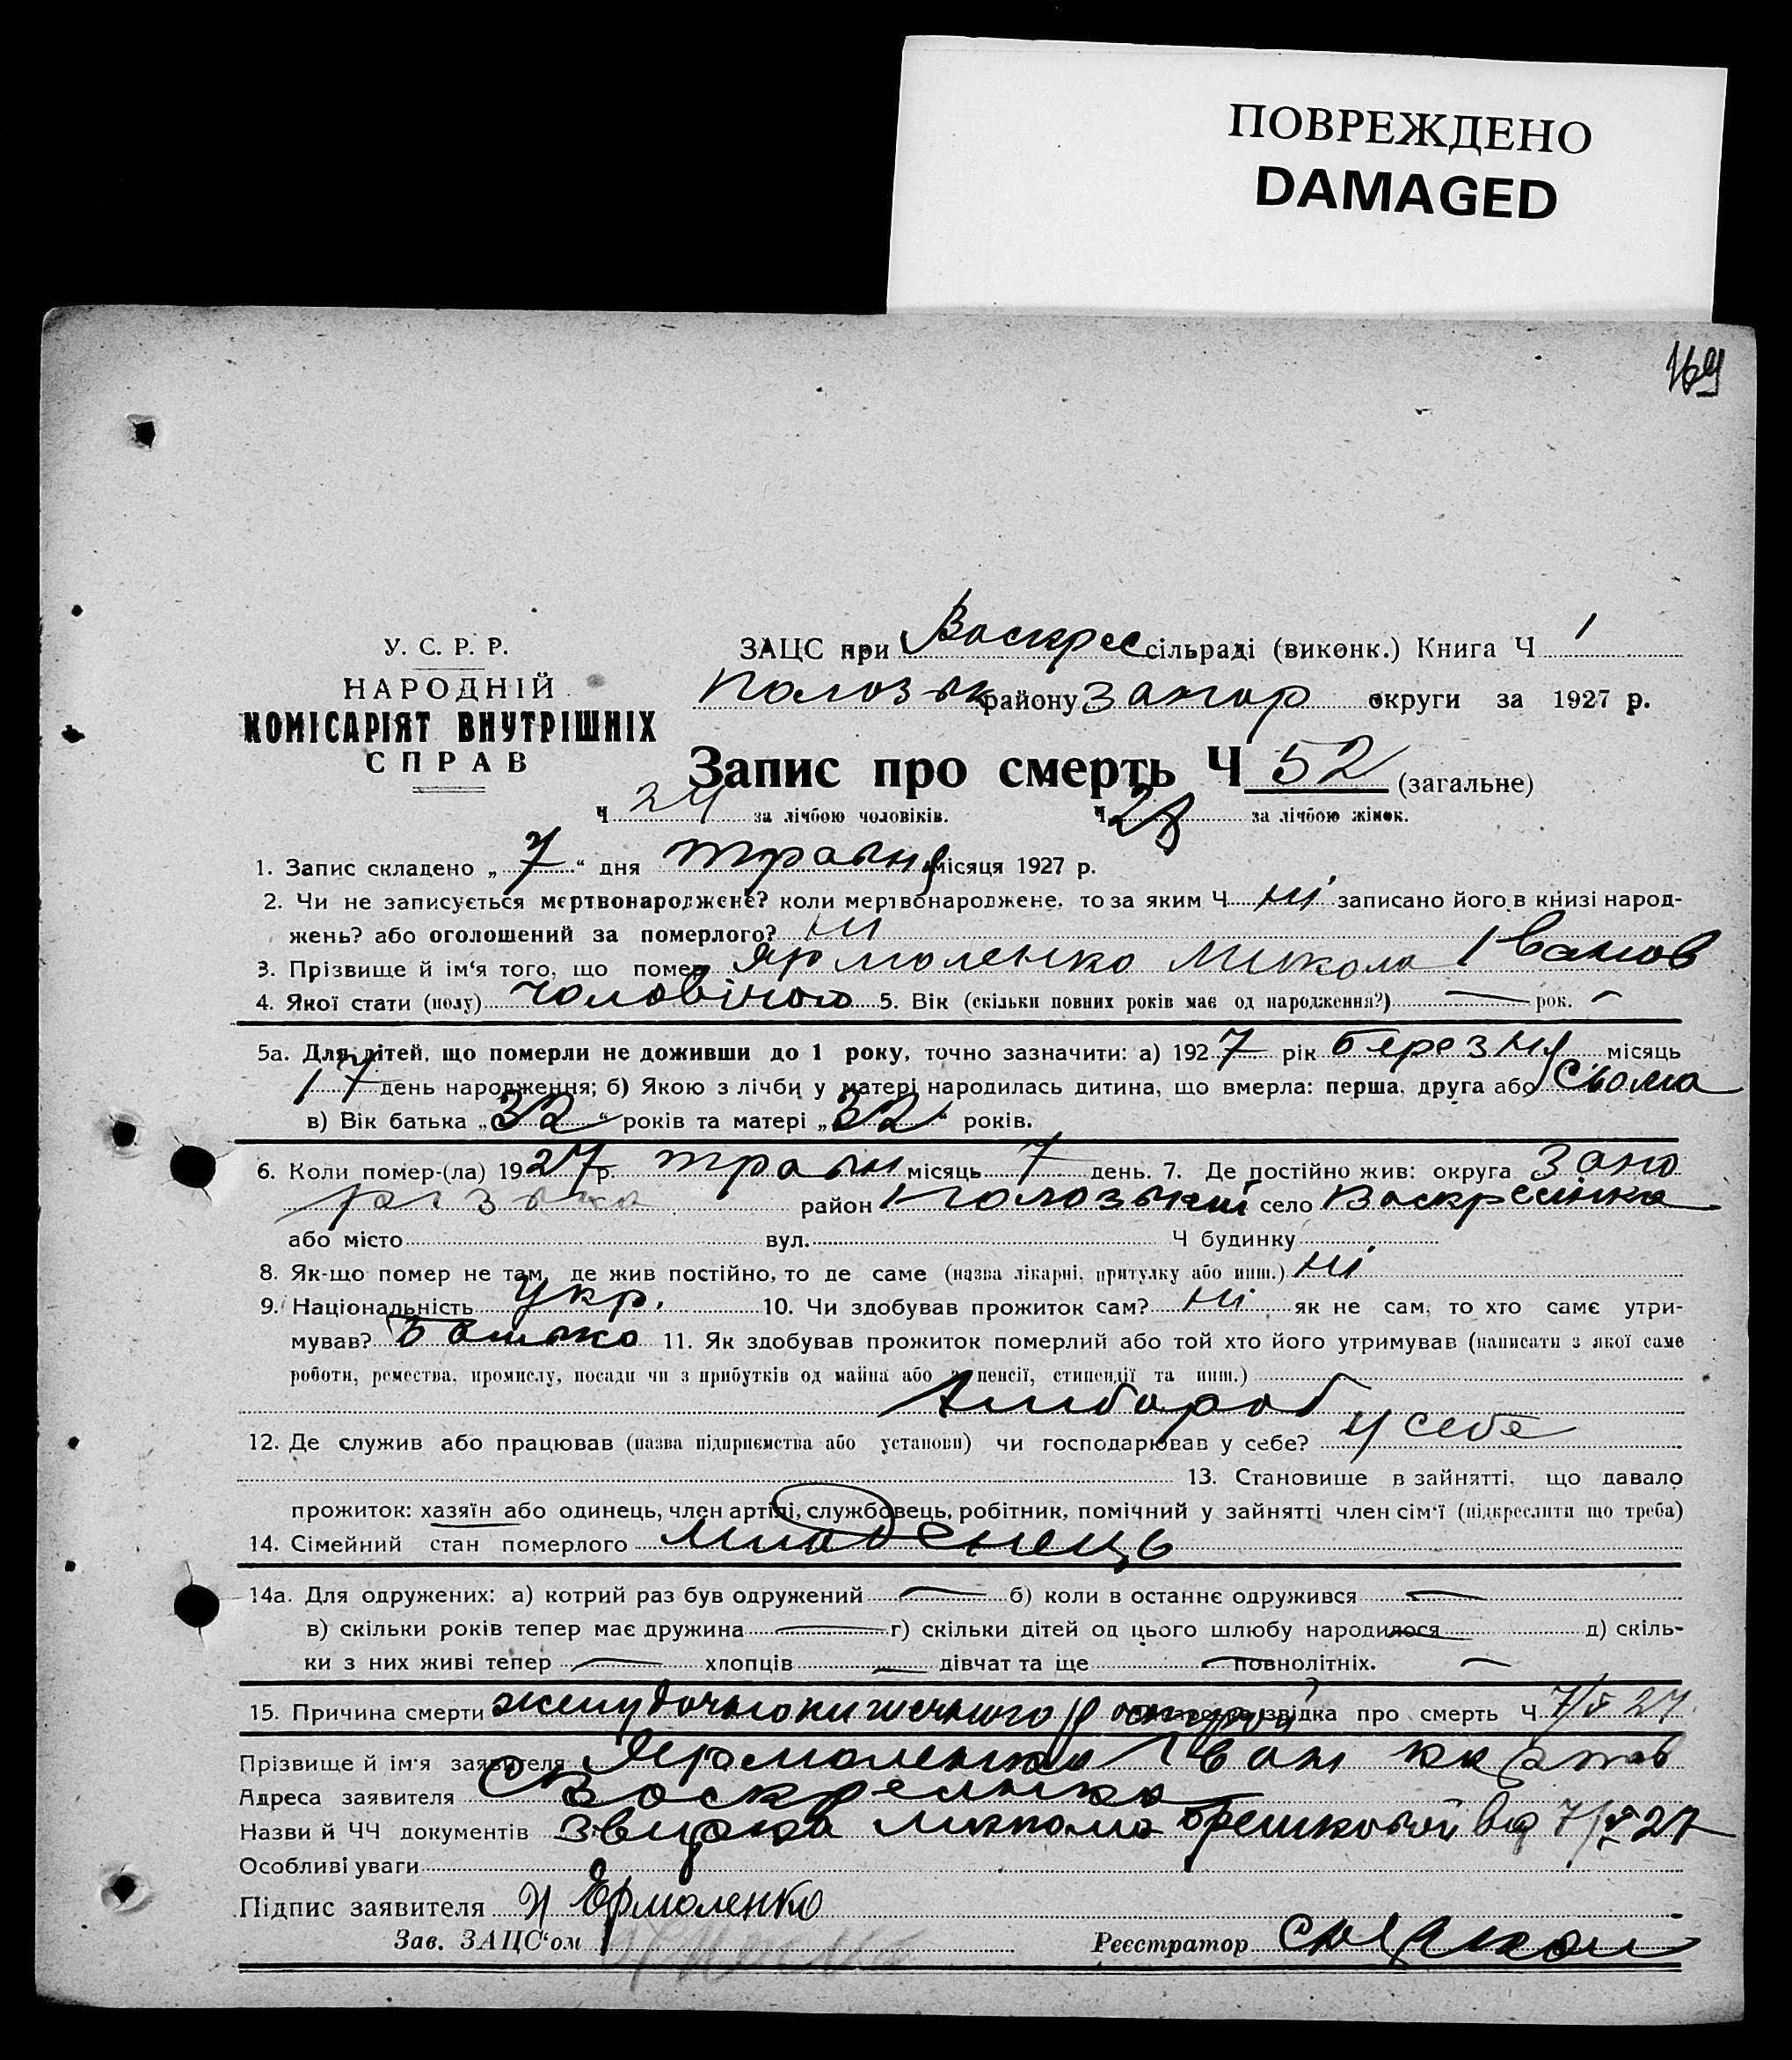 ПОВРЕЖДЕНО
DAMAGED
169
У. С. Р. Р.
НАРОДНІЙ
КОМІСАРІЯТ ВНУТРІШНІХ
СПРАВ
ЗАЦС при Воскрес сільраді (виконк.) Книга Ч 1
Пологзьк району Запор округи за 1927 р.
Запис про смерть Ч 52 (загальне)
Ч 24 за лічбою чоловіків. Ч 28 за лічбою жінок.
1. Запис складено „ 7 “ дня травня місяця 1927 р.
2. Чи не записується мертвонароджене? коли мертвонароджене, то за яким Ч ні записано його в книзі народ-
жень? або оголошений за померлого? ні
3. Прізвище й ім‘я того, що помер Ярмоленко Микола Іванов
4. Якої стати (полу) чоловічого 5. Вік (скільки повних років має од народження?) — рок. —
5а. Для дітей, що померли не доживши до 1 року, точно зазначити: а) 1927 рік березня місяць
17 день народження; б) Якою з лічби у матері народилась дитина, що вмерла: перша, друга або сьома
в) Вік батька „ 32 “ років та матері „ 32 “ років.
6. Коли помер-(ла) 1927 р. травн місяць 7 день. 7. Де постійно жив: округа Запо
різька район Пологзький село Воскресінка
або місто вул. Ч будинку
8. Як-що помер не там, де жив постійно, то де саме (назва лікарні, притулку або инш.) ні
9. Національність Укр. 10. Чи здобував прожиток сам? ні як не сам, то хто саме утри-
мував? Батько 11. Як здобував прожиток померлий або той хто його утримував (написати з якої саме
роботи, ремества, промислу, посади чи з прибутків од майна або з пенсії, стипендії та инш.)
Хлібороб
12. Де служив або працював (назва підприємства або установи) чи господарював у себе? у себе
13. Становище в зайнятті, що давало
прожиток: хазяїн або одинець, член артілі, службовець, робітник, помічний у зайнятті член сім‘ї (підкреслити що треба)
14. Сімейний стан померлого младенець
14а. Для одружених: а) котрий раз був одружений — б) коли в останнє одружився —
в) скільки років тепер має дружина — г) скільки дітей од цього шлюбу народилося — д) скіль-
ки з них живі тепер — хлопців — дівчат та ще — повнолітніх. —
15. Причина смерти желудочнокишечного звідка про смерть Ч 7/V 27
Прізвище й ім‘я заявителя Ярмоленко Іван
Адреса заявителя с Воскресінка
Назви й ЧЧ документів від 7/V 27
Особливі уваги
Підпис заявителя И Ярмоленко
Зав. ЗАЦС‘ом Реєстратор